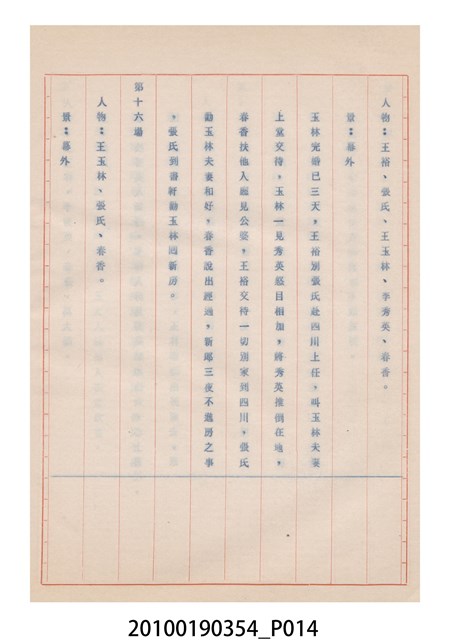 人物：王裕、張氏、王玉林、李秀英、春香。
景：幕外
玉林完婚已三天，王裕別張氏赴四川上任，叫玉林夫妻
上堂交待，玉林一見秀英怒目相加，將秀英推倒在地，
春香扶他入面見公婆，王裕交待一切別家到四川，張氏
勸玉林夫妻和好，春香說出經過，新郎三夜不進房之事
，張氏到書軒勸玉林回新房。
第十六場
人物：王玉林、張氏、春香。
景：幕外
20100190354_P014